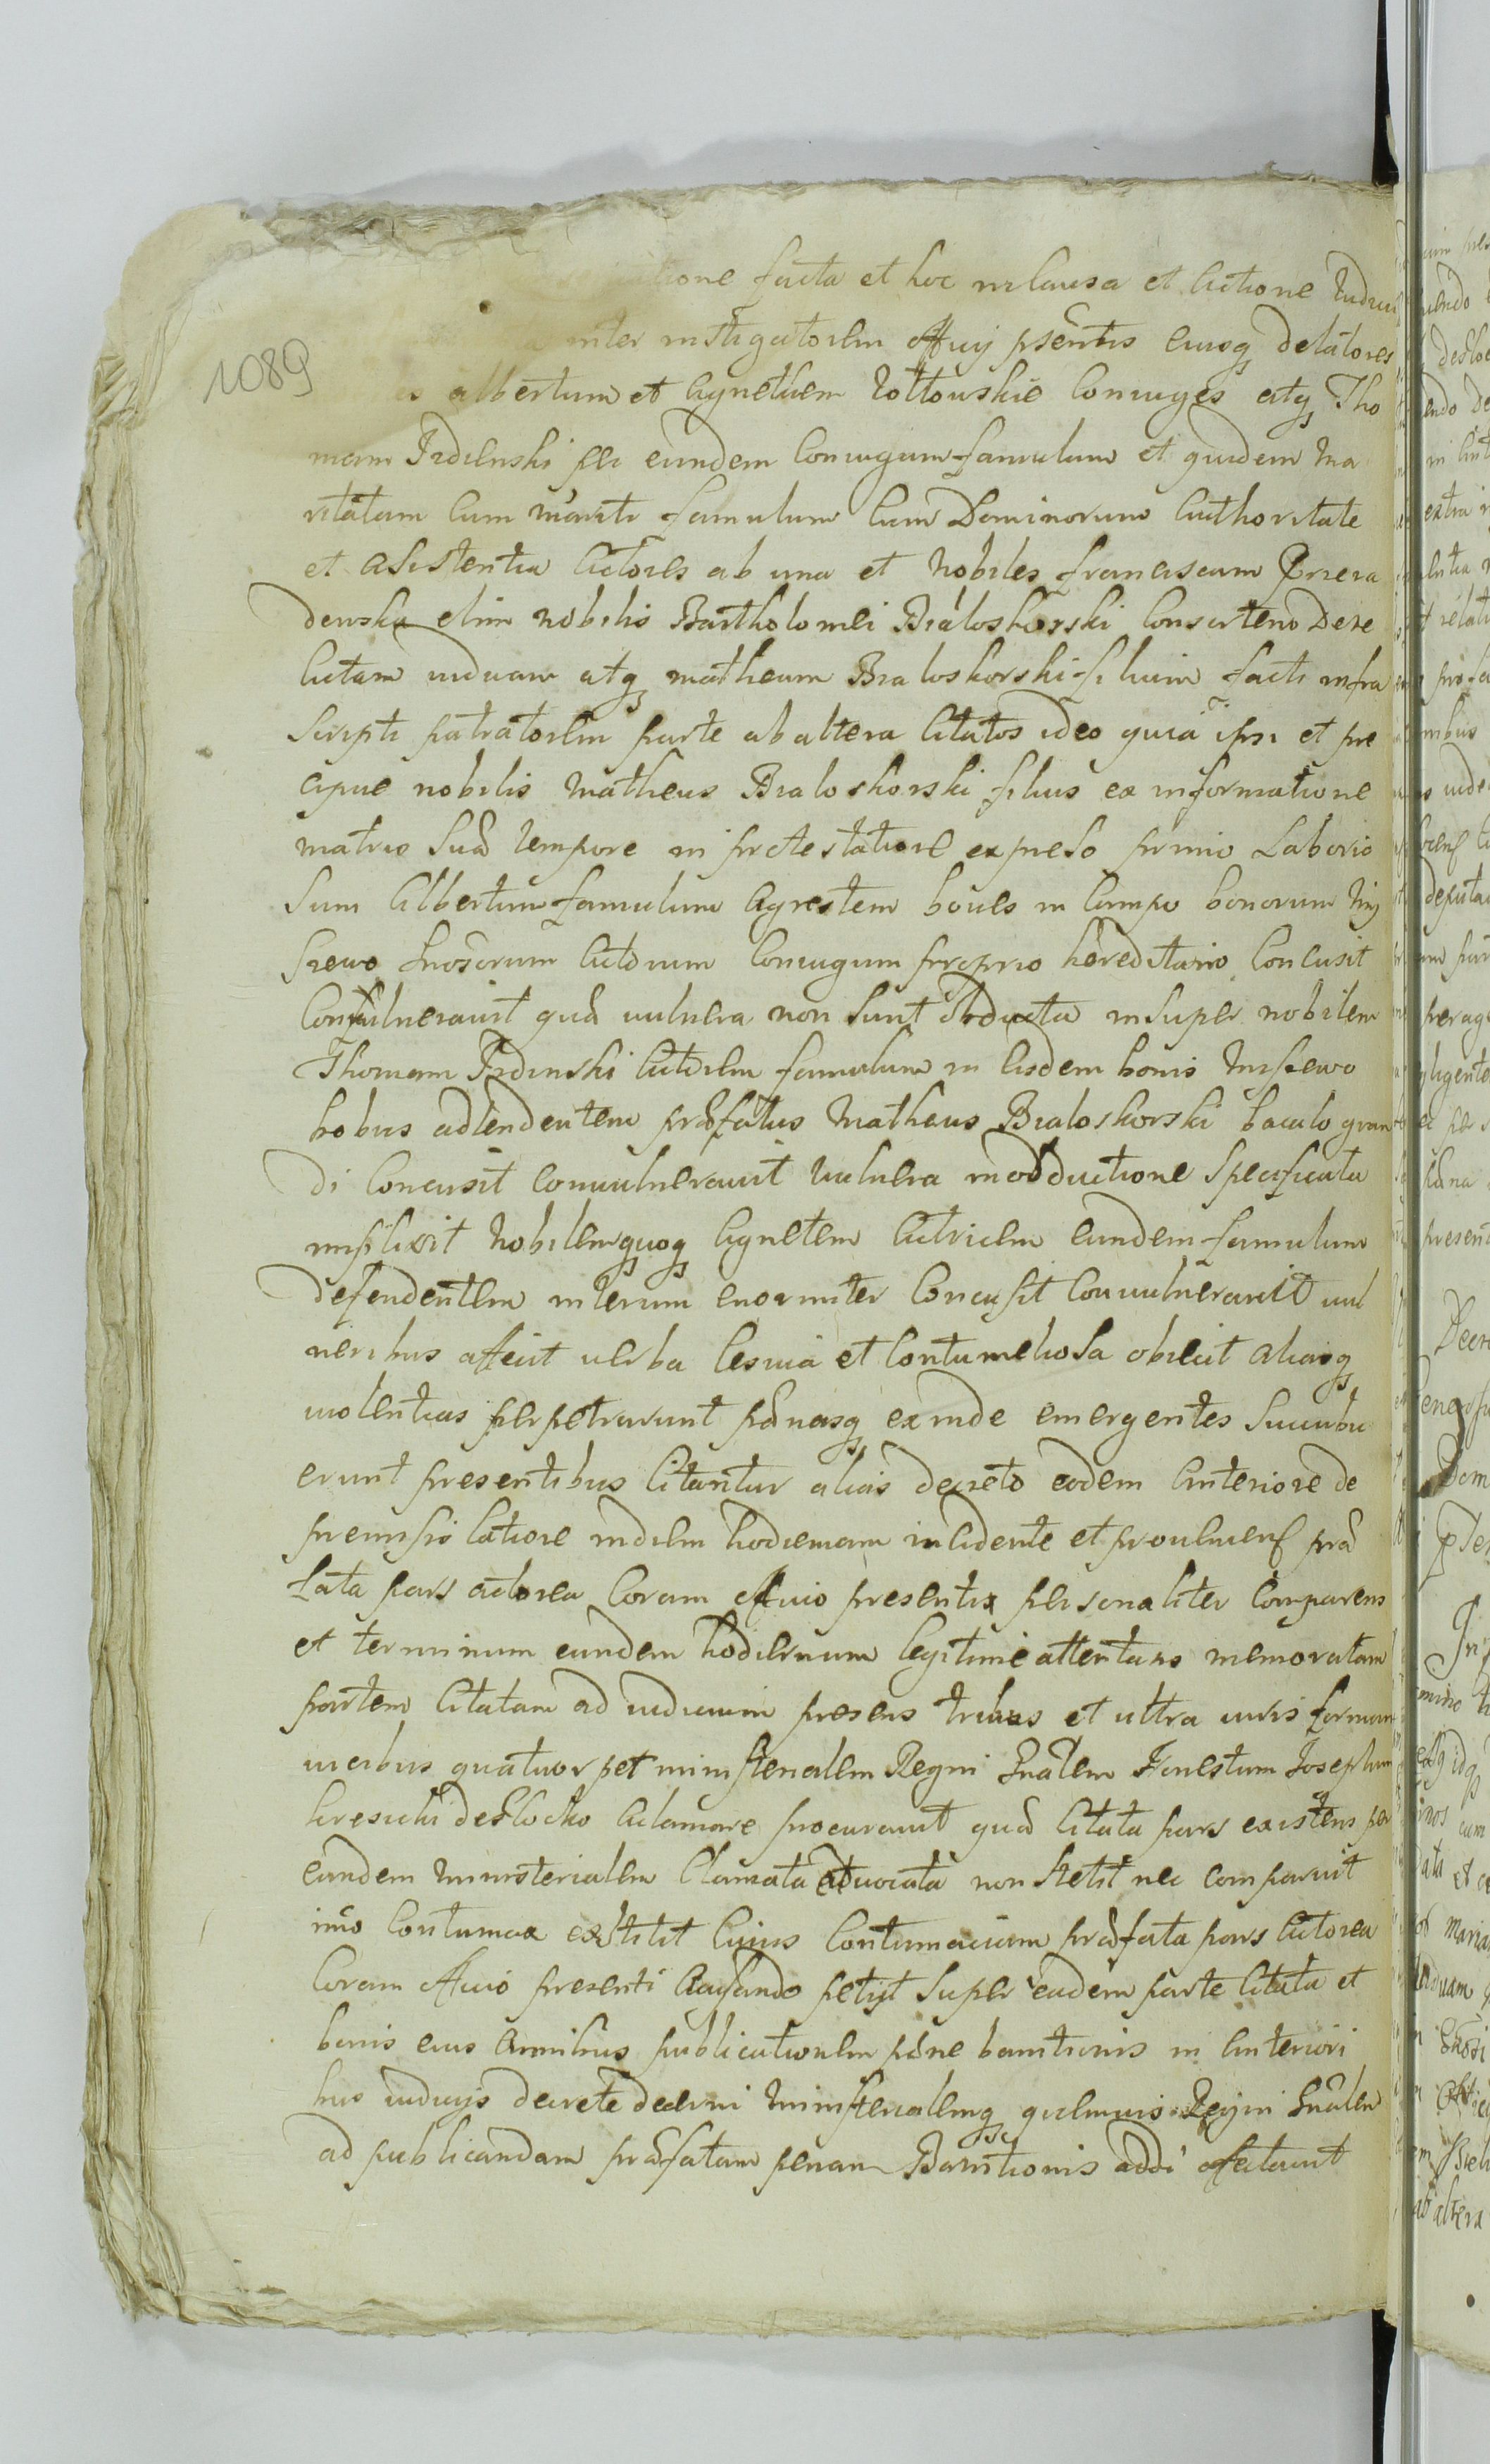 tione facta et hoc in causa et Actione Iudicii
inter instigatorem Officij pñtis eiusq delatores
albertum et Agnethem Zołtowskie Coniuges atq Tho
mam Irdzenski per eundem Coniugum famulum et quidem Ma
ritatam Cum mariti famulum Cum Dominorum Authoritate
et Asistentia Actores ab una et Nobiles franciscam Przera
dowska olim nobilis Bartholomei Białoskorski Consortem Dere
lictam viduam atq matheum Białoskorski filium facti infra
scripti patratorem parte ab altera Citatos ideo quia ipsi et pre
cipue nobilis Matheus Białoskorski filius ex informatione
matris Suæ tempore in protestatione expreso primo Laborio
sum Albertum famulum Agrestem boues in Campo bonorum My
szewo Gnosorum Actorum Coniugum proprio hæreditario Concusit
Conuulnerauit quæ uulnera non sunt obducta insuper nobilem
Thomam Irdzinski Actorem famulum in eisdem bonis Miszewo
bobus adtendentem præfatus Matheus Białoskorski baculo gran
di Concusit conuulnerauit vulnera in obductione specificata
inflixit Nobilemquoq Agnetem Actricem eundem famulum
defendentem iterum enormiter Concusit Conuulnerauit uul
neribus affecit verba lesiua et Contumeliosa obiecit aliasq
uiolentias perpetrarunt pænasq exinde emergentes Succubu
erunt presentibus Citantur alias decreto eodem Anteriore de
premissis latiore in diem hodiernam incidente et proueniens præ
fata pars actorea Coram Officio presenti personaliter Comparens
et terminum eundem hodiernum legitime attentans memoratam
partem Citatam ad iudicium presens tribus et ultra iuris formam
uicibus quatuor per ministerialem Regni Gnalem Honestum Josephum
de Słocko Aclamare procurauit quæ Citata pars existens per
eundem Ministerialem Clamata aduocata non Stetit nec comparuit
imo Contumax extitit Cuius Contumaciam præfata pars Actorea
Coram Officio presenti Acusando petijt super eadem parte Citata et
bonis eius omnibus publicationem pænæ bannitionis in Anteriori
bus iudicijs decretæ decerni Ministerialemq quemuis Regni Gnalem
ad publicandam præfatam penam Bannitionis addi afectauit
1089